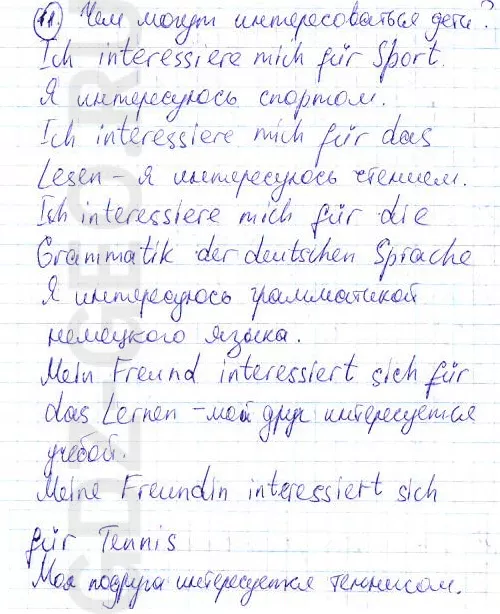 11) Чем могут интересоваться дети?
Ich interessiere mich für Sport.
Я интересуюсь спортом.
Ich interessiere mich für das
Lesen - я интересуюсь чтением.
Ich interessiere mich für die
Grammatik der deutschen Sprache
Я интересуюсь грамматикой
немецкого языка.
Mein Freund interessiert sich für
das Lernen - мой друг интересуется
учебой.
Meine Freundin interessiert sich
für Tennis
Моя подруга интересуется теннисом.
GDZ-GEO.RU